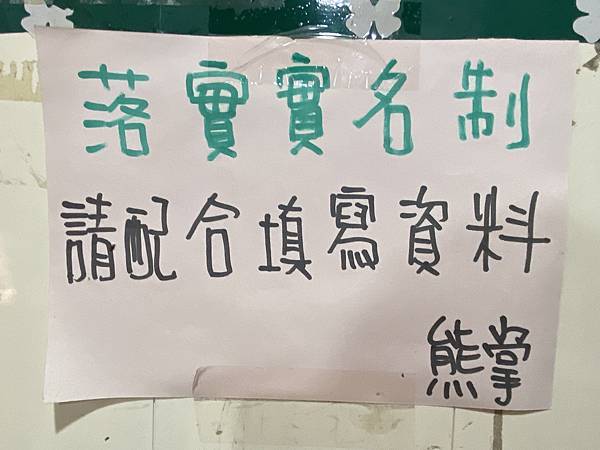 落實實名制
請配合填寫資料
熊掌